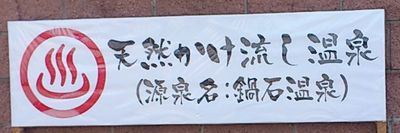 天然かけ流し温泉
(源泉名:鍋石温泉)